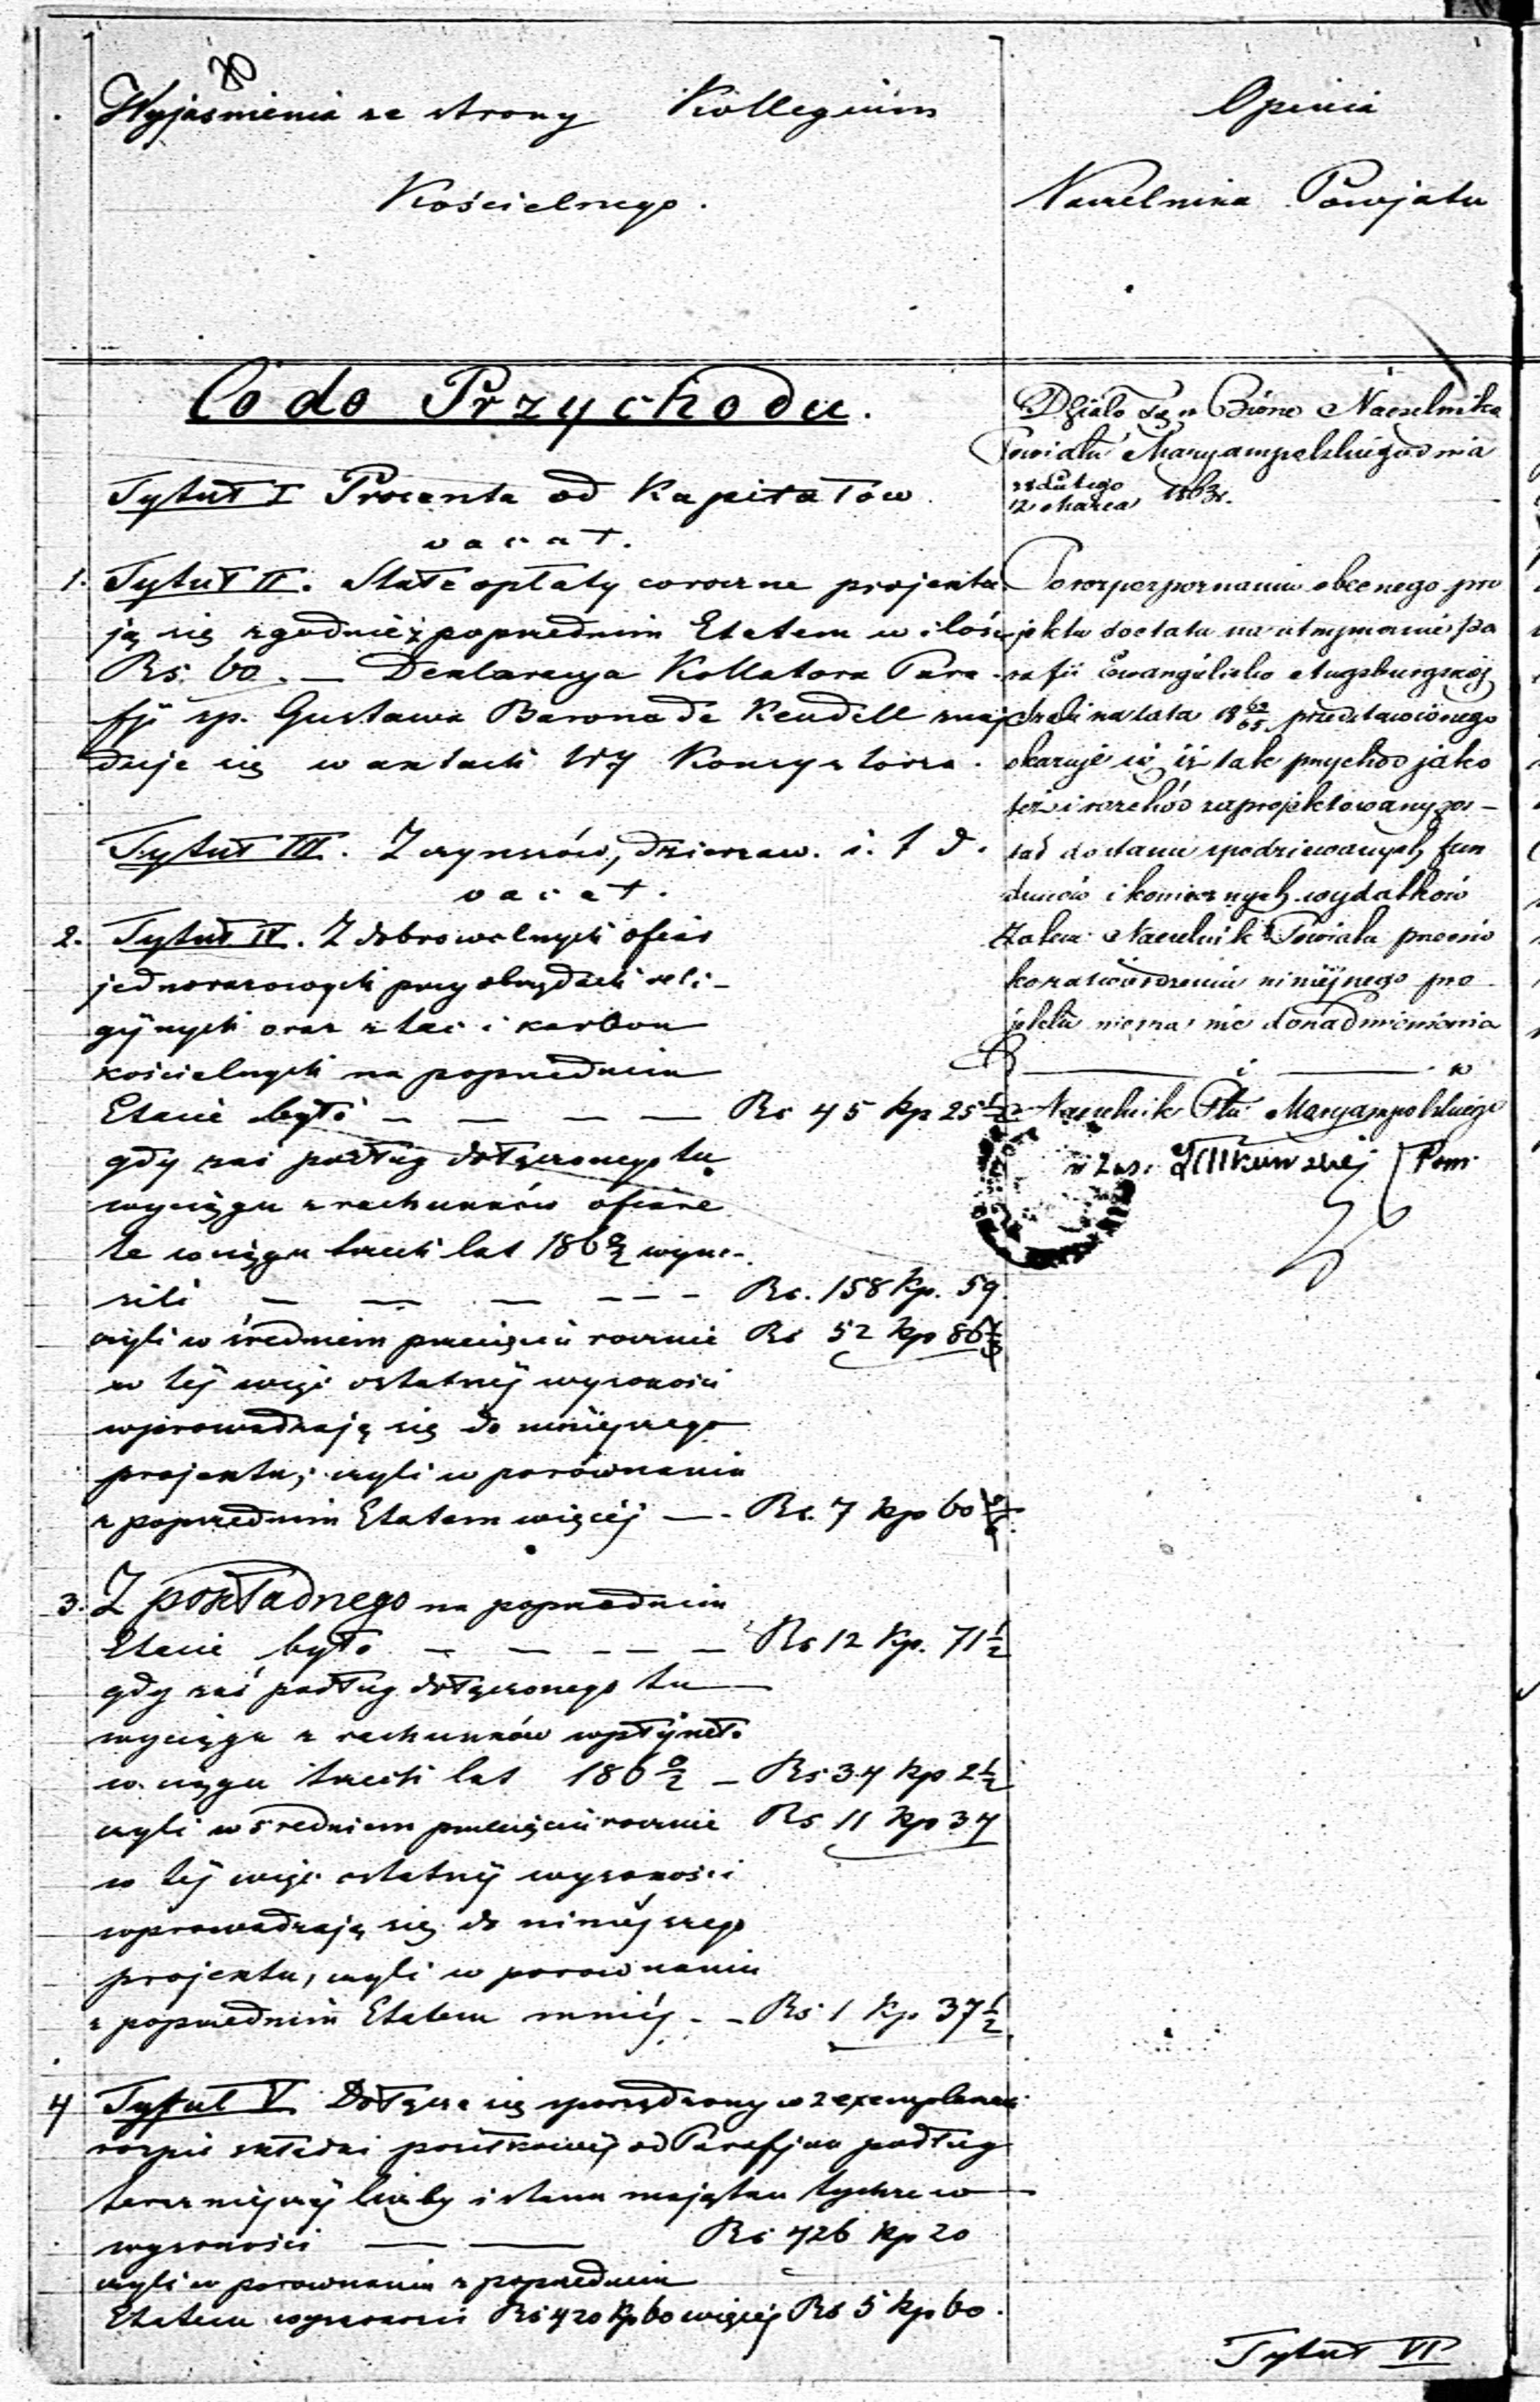 30
Wyjaśnienia ze strony Kollegium
Kościelnego.
Co do Przychodu.
Tytuł I Procenta od Kapitałow
vacat.
1. Tytuł II. Stałe opłaty coroczne projektu
ją się zgodnie z poprzednim Etatem w ilości
Rs. 60. — Deklaracya Kollatora Para-
fji sp. Gustawa Barona de Keudell znaj
duje się w aktach Wy Konsystorza.
Tytuł III. Z czynszów, dzierzaw. i. t d.
vacat.
2. Tytuł IV. Z dobrowolnych ofiar
jednorazowych przy obrzędach reli-
gijnych oraz z tac i karbon
kościelnych na poprzednim
Etacie było — — — — Rs 45 kp 25 1/2
gdy zaś podług dołączonego tu
wyciągu z rachunków ofiare
te w ciągu trzech lat 186 0/2 wyno-
sili — — — — — Rs. 158 kp. 59
czyli w średniem przecięciu rocznie Rs 52 kp 86 1/3
w tej więc ostatniej wysokości
wprowadzają się do niniejszego
projektu, czyli w porównaniu
z poprzednim Etatem więcej — Rs. 7 kp 60
3. Z pokładnego na poprzednim
Etacie było — — — — Rs 12 Kp. 71 1/2
gdy zaś podług dołączonego tu
wyciągu z rachunków wpłynęło
w ciągu trzech lat 186 0/2 — Rs 34 kp 2 1/2
czyli w średniem przecięciu rocznie Rs 11 kp 34
w tej więc ostatniej wysokości
wprowadzają się do niniejszego
projektu, czyli w porownaniu
z poprzednim Etatem mniej — Rs 1 Kp 37 1/2
4 Tytuł V. Dołącza się sporządzony w 2 exemplarzach
rozpis składki posiłkowej od Parafjan podług
teraźniejszej liczby i stanu majątku tychze w
wysokości — — Rs 426 kp 20
czyli w porownaniu z poprzednim
Etatem wysokości Rs 420 kp 60 więcej Rs 5 kp 60.
Opinia
Naczelnika Powjatu
Działo się w Biórze Naczelnika
Powiatu Maryampolskiego dnia
28 Lutego
12 Marca 1863 r.
Po rozpoznaniu obecnego pro
jektu do etatu na utrzymanie Pa
rafii Ewangelicko Augsburgskiej
na lata 18 63/65 przedstawionego
okazuje się iż tak przychód jako
też i rozchód zaprojektowany zos-
tał do stanu spodziewanych fun
duszów i koniecznych wydatków
Zatem Naczelnik Powiatu przeciw
ko zatwierdzeniu niniejszego pro
jektu niema nic do nadmienienia
Naczelnik Ptu Maryampolskiego
w Zas. Pom.
Tytuł VI